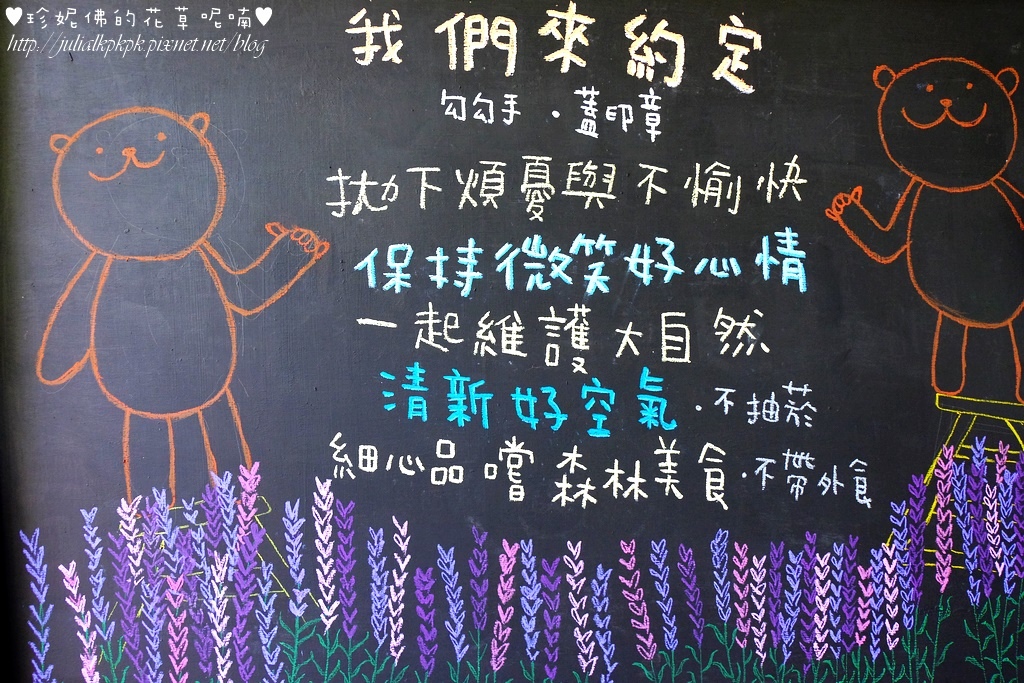 ♥珍妮佛的花草呢喃♥
http://julialkpkpk.pixnet.net/blog
我們來約定
勾勾手．蓋印章
拋下煩憂與不愉快
保持微笑好心情
一起維護大自然
清新好空氣．不抽菸
細心品嚐森林美食．不帶外食